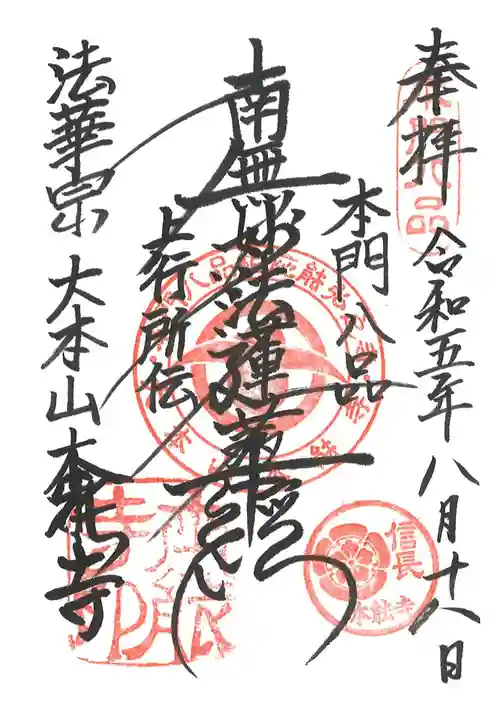 奉拝
令和五年八月十八日
本門八品
南無妙法蓮華経
上行所伝
法華宗 大本山 本能寺
信長
本能寺